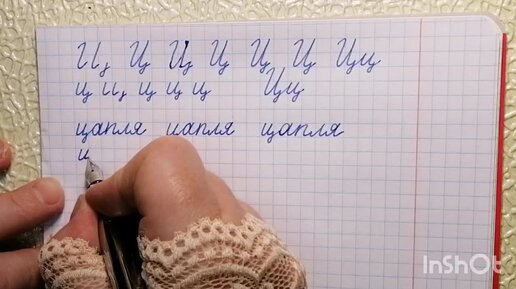 Ц Ц Ц Ц Ц Ц Цц
ц ц ц ц ц Цц
цапля цапля цапля
ц
InShOt